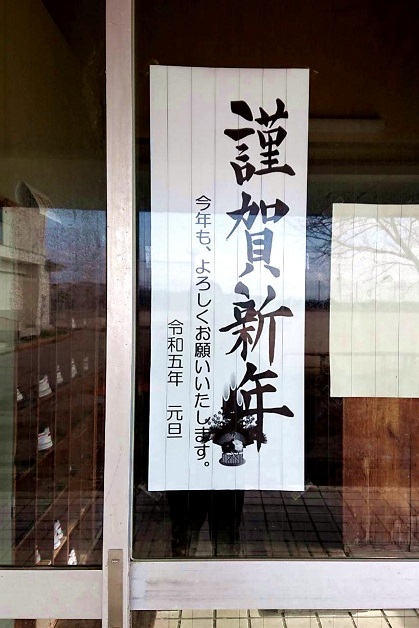 謹賀新年
今年も、よろしくお願いいたします。
令和五年 元旦